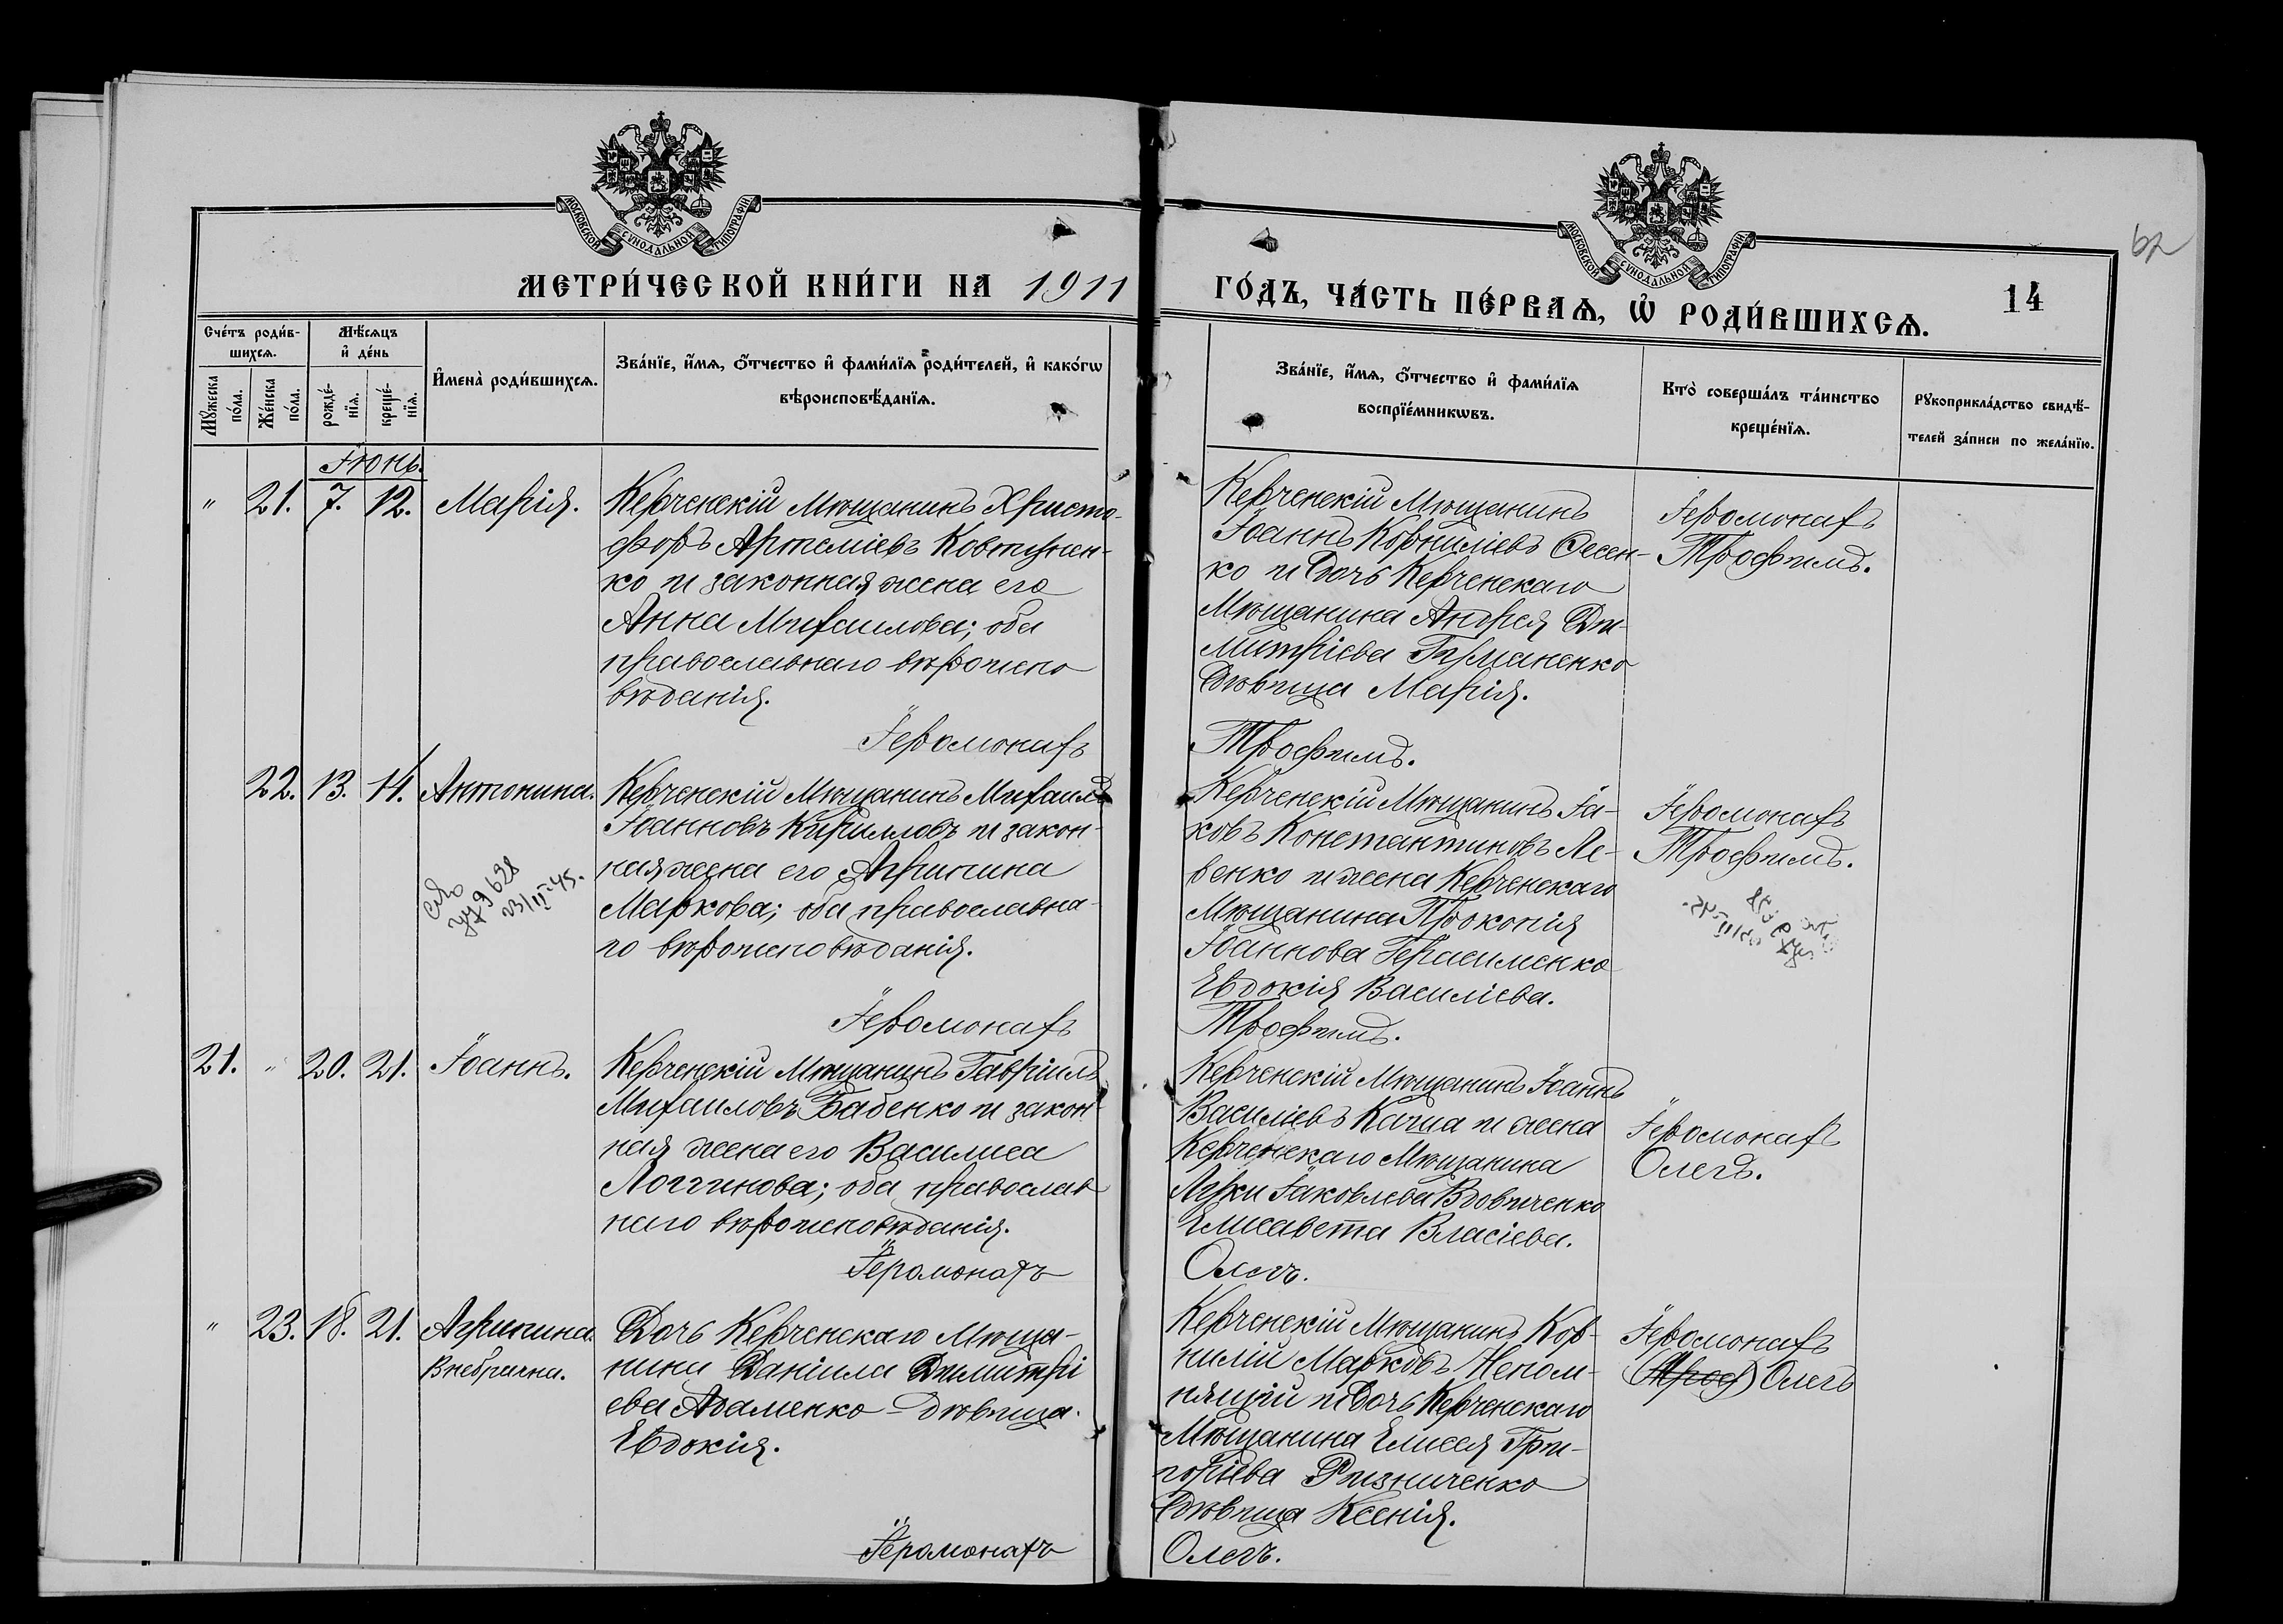 МОСКОВСКОЙ СУНОДАЛЬНОЙ ТИПОГРАФІИ
МОСКОВСКОЙ СУНОДАЛЬНОЙ ТИПОГРАФІИ
МЕТРИ́ЧЕСКОЙ КНИ́ГИ НА 1911
ГО́ДЪ, ЧА́СТЬ ПЕ́РВАѦ, Ѡ҆ РОДИ́ВШИХСѦ.
14
62
Сче́тъ роди́в-
шихсѧ.
Мꙋ́жеска
по́ла.
Же́нска
по́ла.
Мѣ́сѧцъ
и҆ де́нь
рожде́-
нїѧ.
креще́-
нїѧ.
И҆мена̀ роди́вшихсѧ.
Зва́нїе, и҆́мѧ, ѻ҆́тчество и҆ фами́лїѧ роди́телей, и҆ како́гѡ
вѣроисповѣ́данїѧ.
Зва́нїе, и҆́мѧ, ѻ҆́тчество и҆ фами́лїѧ
воспрїе́мникѡвъ.
Кто̀ соверша́лъ та́инство
креще́нїѧ.
Рꙋкоприкла́дство свидѣ́-
телей за́писи по жела́нїю.
Іюнь.
" 21. 7. 12. Марія.
Керченскій Мѣщанинъ Христо-
форъ Артеміевъ Ковтунен-
ко и законная жена его
Анна Михаилова; оба
православнаго вѣроиспо
вѣданія.
Іеромонахъ
Керченскій Мѣщанинъ
Іоаннъ Корниліевъ Фесен-
ко и дочь Керченскаго
Мѣщанина Андрея Ди-
митріева Гарманенко
дѣвица Марія.
Трофимъ.
Іеромонахъ
Трофимъ.
22. 13. 14. Антонина.
23/II-45.
Керченскій Мѣщанинъ Михаилъ
Іоанновъ Кирилловъ и закон-
ная жена его Агрипина
Маркова; оба православна-
го вѣроисповѣданія.
Іеромонахъ
Керченскій Мѣщанинъ Іа-
ковъ Константиновъ Ле-
венко и жена Керченскаго
Мѣщанина Прокопія
Іоаннова Герасименко
Евдокія Василіева.
Трофимъ.
Іеромонахъ
Трофимъ.
21. " 20. 21. Іоаннъ.
Керченскій Мѣщанинъ Гавріилъ
Михаиловъ Бабенко и закон-
ная жена его Василиса
Логгинова; оба православ
наго вѣроисповѣданія.
Іеромонахъ
Керченскій Мѣщанинъ Іоаннъ
Василіевъ Капша и жена
Керченскаго Мѣщанина
Луки Іаковлева Вдовиченко
Елисавета Власіева.
Олегъ.
Іеромонахъ
Олегъ.
" 23. 18. 21. Агрипина.
Внебрачна.
Дочь Керченскаго Мѣща-
нина Даніила Димитрі
ева Адаменко - дѣвица
Евдокія.
Іеромонахъ
Керченскій Мѣщанинъ Кор-
нилій Марковъ Непом-
нящій и дочь Керченскаго
Мѣщанина Елисея Гри-
горіева Ризниченко
дѣвица Ксенія.
Олегъ.
Іеромонахъ
(Троф) Олегъ